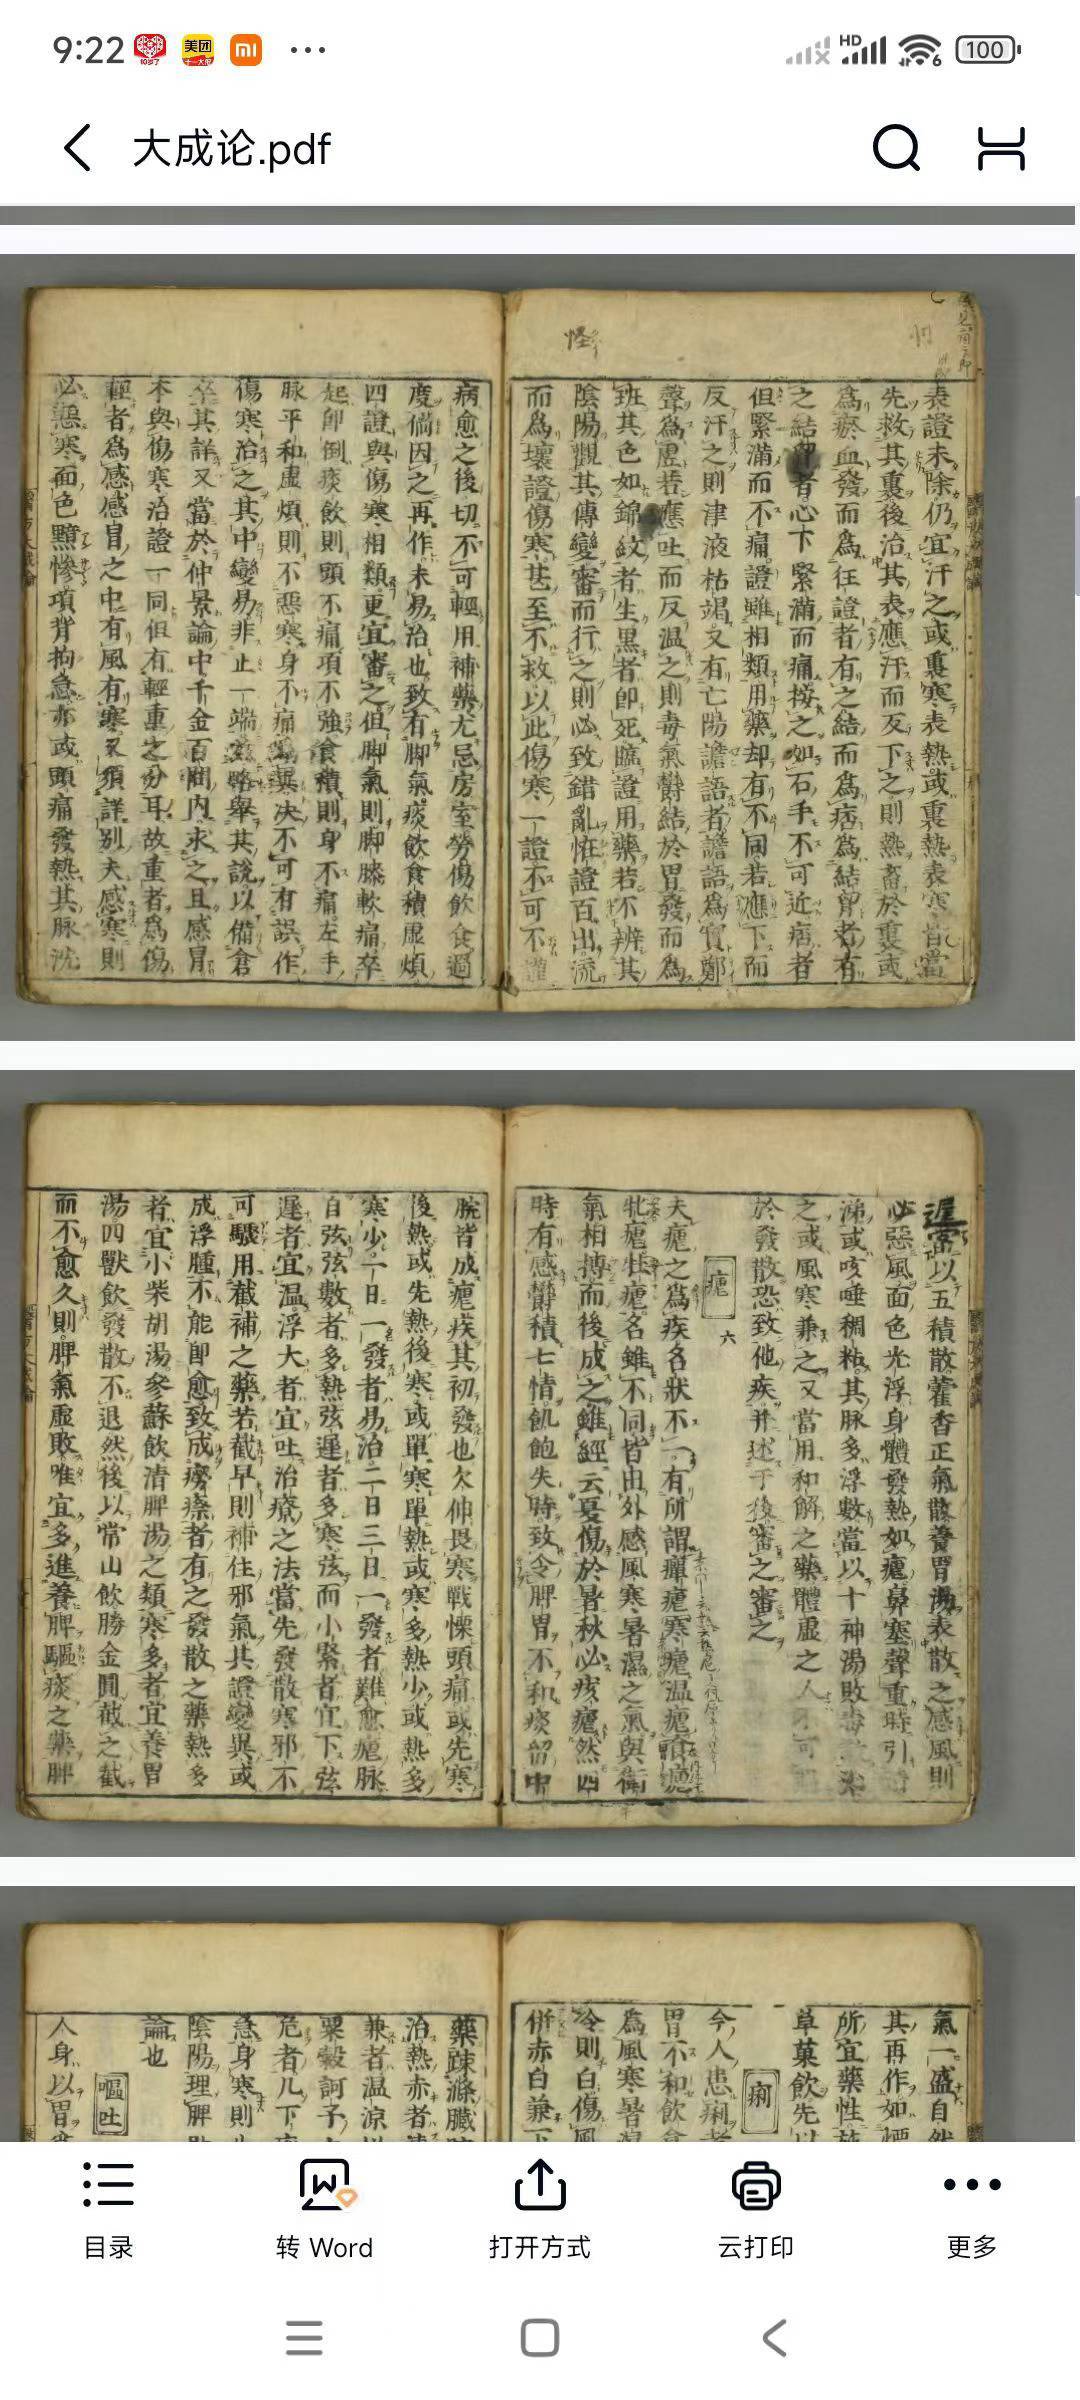 9:22
美团
HD
6
100
大成论.pdf
怪
表證未除仍宜汗之或裏寒表熱或裏熱表寒皆當
先救其裏後治其表應汗而反下之則熱畜於裏或
為瘀血發而為狂證者有之結而為痞為結胷者有
之結胷者心下緊滿而痛按之如石手不可近痞者
但緊滿而不痛證雖相類用藥却有不同若應下而
反汗之則津液枯竭又有亡陽譫語者譫語為實鄭
聲為虛若應吐而反温之則毒氣欝結於胃發而為
班其色如錦紋者生黑者即死臨證用藥若不辨其
陰陽觀其傳變審而行之則必致錯亂恠證百出流
而為壞證傷寒甚至不救以此傷寒一證不可不謹
病愈之後切不可輕用補藥尤忌房室勞傷飲食過
度倘因之再作未易治也致有脚氣痰飲食積虛煩
四證與傷寒相類更宜審之但脚氣則脚膝軟痛卒
起即倒痰飲則頭不痛項不強食積則身不痛左手
脉平和虛煩則不惡寒身不痛 異决不可有誤作
傷寒治之其中變易非止一端 略舉其說以備倉
卒其詳又當於仲景論中千金百問内求之且感冒
本與傷寒治證一同但有輕重之分耳故重者為傷
輕者為感感冒之中有風有寒又須詳別夫感寒則
必惡寒面色黯慘項背拘急亦或頭痛發熱其脉沈
遲常以五積散藿香正氣散養胃湯表散之感風則
必惡風面色光浮身體發熱如瘧鼻塞聲重時引
涕或咳唾稠粘其脉多浮數當以十神湯敗毒
之或風寒兼之又當用和解之藥體虛之人不可
於發散恐致他疾并述于後審之審之
瘧 六
夫瘧之為疾名狀不一有所謂癉瘧寒瘧温瘧食瘧
牝瘧牡瘧名雖不同皆由外感風寒暑濕之氣與衛
氣相搏而後成之雖經云夏傷於暑秋必痎瘧然四
時有感欝積七情飢飽失時致令脾胃不和痰留中
脘皆成瘧疾其初發也欠伸畏寒戰慄頭痛或先寒
後熱或先熱後寒或單寒單熱或寒多熱少或熱多
寒少一日一發者易治二日三日一發者難愈瘧脉
自弦弦數者多熱弦遲者多寒弦而小緊者宜下弦
遲者宜温浮大者宜吐治療之法當先發散寒邪不
可驟用截補之藥若截早則補住邪氣其證變異或
成浮腫不能即愈致成癆瘵者有之發散之藥熱多
者宜小柴胡湯參蘇飲清脾湯之類寒多者宜養胃
湯四獸飲發散不退然後以常山飲勝金圓截之截
而不愈久則脾氣虛敗唯宜多進養脾驅痰之藥脾
氣一盛自然
其再作如
所宜藥性
草菓飲先以
痢
今人患痢者
胃不和飲食
為風寒暑濕
冷則白傷風
併赤白兼下
藥疎滌臟
治熱赤者
兼者温涼
粟殼訶子
危者几下
急身寒則
陰陽理脾
論也
嘔吐
人身以胃
目录
转 Word
打开方式
云打印
更多